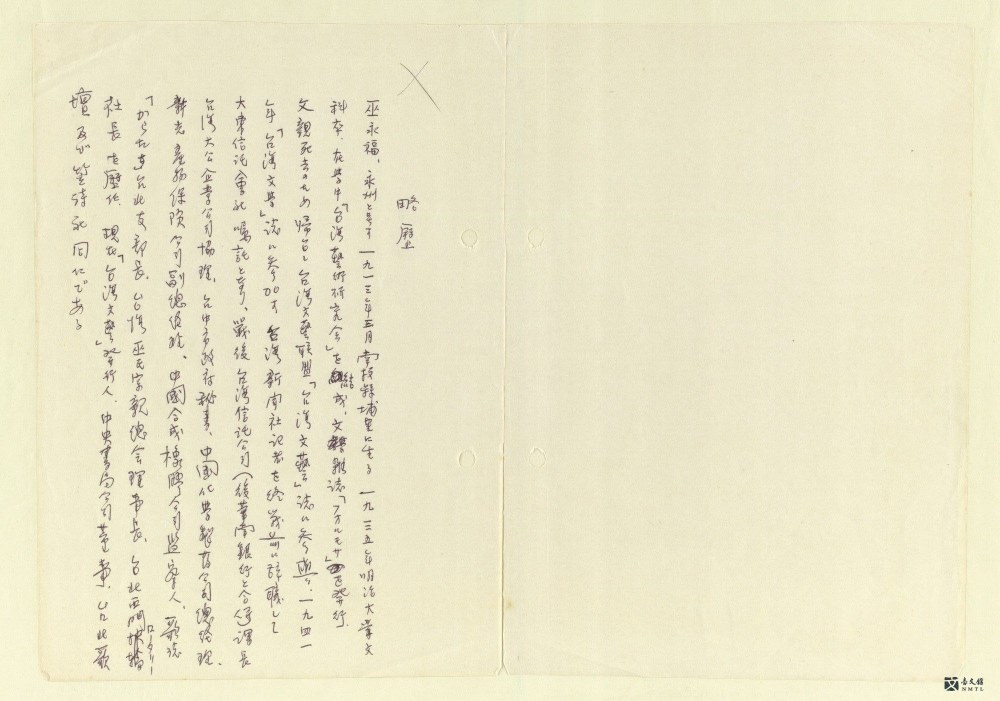 略歴
巫永福、永州と号す 一九一三年三月 南投縣埔里に生る 一九三五年明治大学文
科卒、在学中「台湾藝術研究会」を結成、文藝雑誌「フオルモサ」を発行、
父親死去のため帰台し台湾文藝聯盟「台湾文藝」誌に参与、一九四一
年「台湾文学」誌に参加す 台湾新聞社記者を終戦前に辞職して
大東信託會社嘱託となり、戦後台湾信託公司(後華南銀行と合併)課長
台湾大公企業公司協理、台中市政府秘書、中国化学製薬公司總経理、
新光産物保険公司副總経理、中國合成橡膠公司監察人、歌誌
「からたち」台北支部長、台湾巫氏宗親總会理事長、台北西門扶輪
ロータリー
社長を歴任、現在「台湾文藝」発行人、中央書局公司董事、台北歌
壇及び笠詩社同仁である
臺文館
NMTL